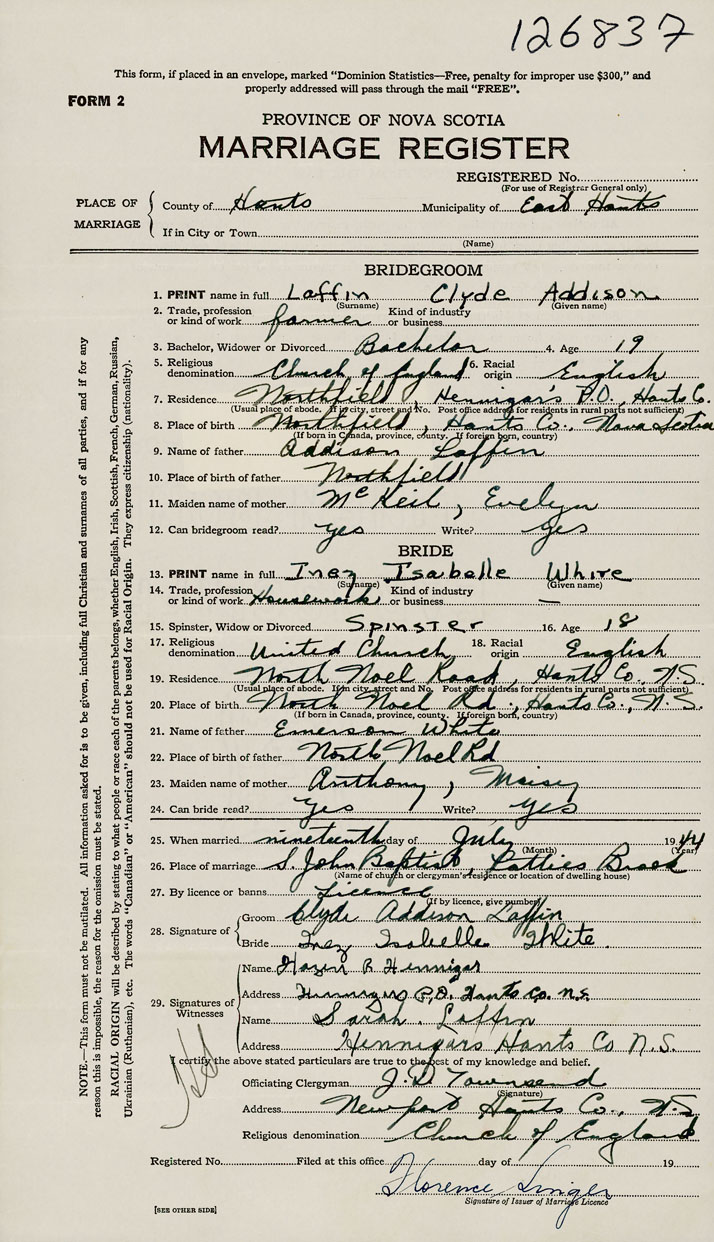 126837
This form, if placed in an envelope, marked "Dominion Statistics—Free, penalty for improper use $300," and
properly addressed will pass through the mail "FREE".
FORM 2
PROVINCE OF NOVA SCOTIA
MARRIAGE REGISTER
REGISTERED No.
(For use of Registrar General only)
PLACE OF MARRIAGE
County of Hants Municipality of East Hants
If in City or Town
(Name)
BRIDEGROOM
1. PRINT name in full Laffin Clyde Addison
(Surname) (Given name)
2. Trade, profession or kind of work farmer Kind of industry or business
3. Bachelor, Widower or Divorced Bachelor 4. Age 19
5. Religious denomination Church of England 6. Racial origin English
7. Residence Northfield, Hennigar's P.O., Hants Co.
(Usual place of abode. If in city, street and No. Post office address for residents in rural parts not sufficient)
8. Place of birth Northfield, Hants Co., Nova Scotia
(If born in Canada, province, county. If foreign born, country)
9. Name of father Addison Laffin
10. Place of birth of father Northfield
11. Maiden name of mother McKeil, Evelyn
12. Can bridegroom read? yes Write? yes
BRIDE
13. PRINT name in full Inez Isabelle White
(Surname) (Given name)
14. Trade, profession or kind of work Housework Kind of industry or business —
15. Spinster, Widow or Divorced Spinster 16. Age 18
17. Religious denomination United Church 18. Racial origin English
19. Residence North Noel Road, Hants Co., N.S.
(Usual place of abode. If in city, street and No. Post office address for residents in rural parts not sufficient)
20. Place of birth North Noel Rd., Hants Co., N.S.
(If born in Canada, province, county. If foreign born, country)
21. Name of father Emerson White
22. Place of birth of father North Noel Rd
23. Maiden name of mother Anthony, Maisey
24. Can bride read? Yes Write? Yes
25. When married nineteenth day of July 1944
(Month) (Year)
26. Place of marriage S. John Baptist, Latties Brook
(Name of church or clergyman's residence or location of dwelling house)
27. By licence or banns Licence
(If by licence, give number)
28. Signature of
Groom Clyde Addison Laffin
Bride Inez Isabelle White.
29. Signatures of Witnesses
Name Hazen R Hennigar
Address Hennigars P.O. Hants Co. N.S.
Name Sarah. Laffin
Address Hennigars Hants Co N.S.
I certify the above stated particulars are true to the best of my knowledge and belief.
Officiating Clergyman J.D. Townsend
(Signature)
Address Newport Hants Co., N.S.
Religious denomination Church of England
Registered No. Filed at this office day of 19
Florence Singer
Signature of Issuer of Marriage Licence
[SEE OTHER SIDE]
NOTE.—This form must not be mutilated. All information asked for is to be given, including full Christian and surnames of all parties, and if for any
reason this is impossible, the reason for the omission must be stated.
RACIAL ORIGIN will be described by stating to what people or race each of the parents belongs, whether English, Irish, Scottish, French, German, Russian,
Ukrainian (Ruthenian), etc. The words "Canadian" or "American" should not be used for Racial Origin. They express citizenship (nationality).